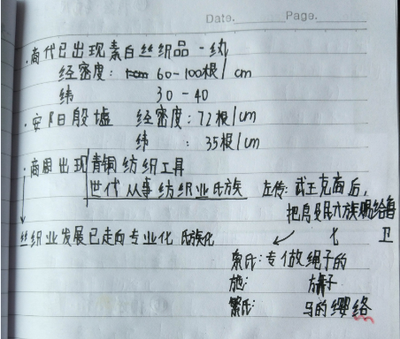 Date.    Page.
·商代已出现素白丝织品 - 纨
经密度: 60-100根/cm
纬 30-40
·安阳殷墟 经密度:72根/cm
纬 : 35根/cm
·商周出现青铜纺织工具
世代从事纺织业氏族 左传:武王克商后,
把殷民六族赐给鲁
七 卫
丝织业发展已走向专业化 氏族化
索氏:专做绳子的
施: 旗子
繁氏: 马的缨络